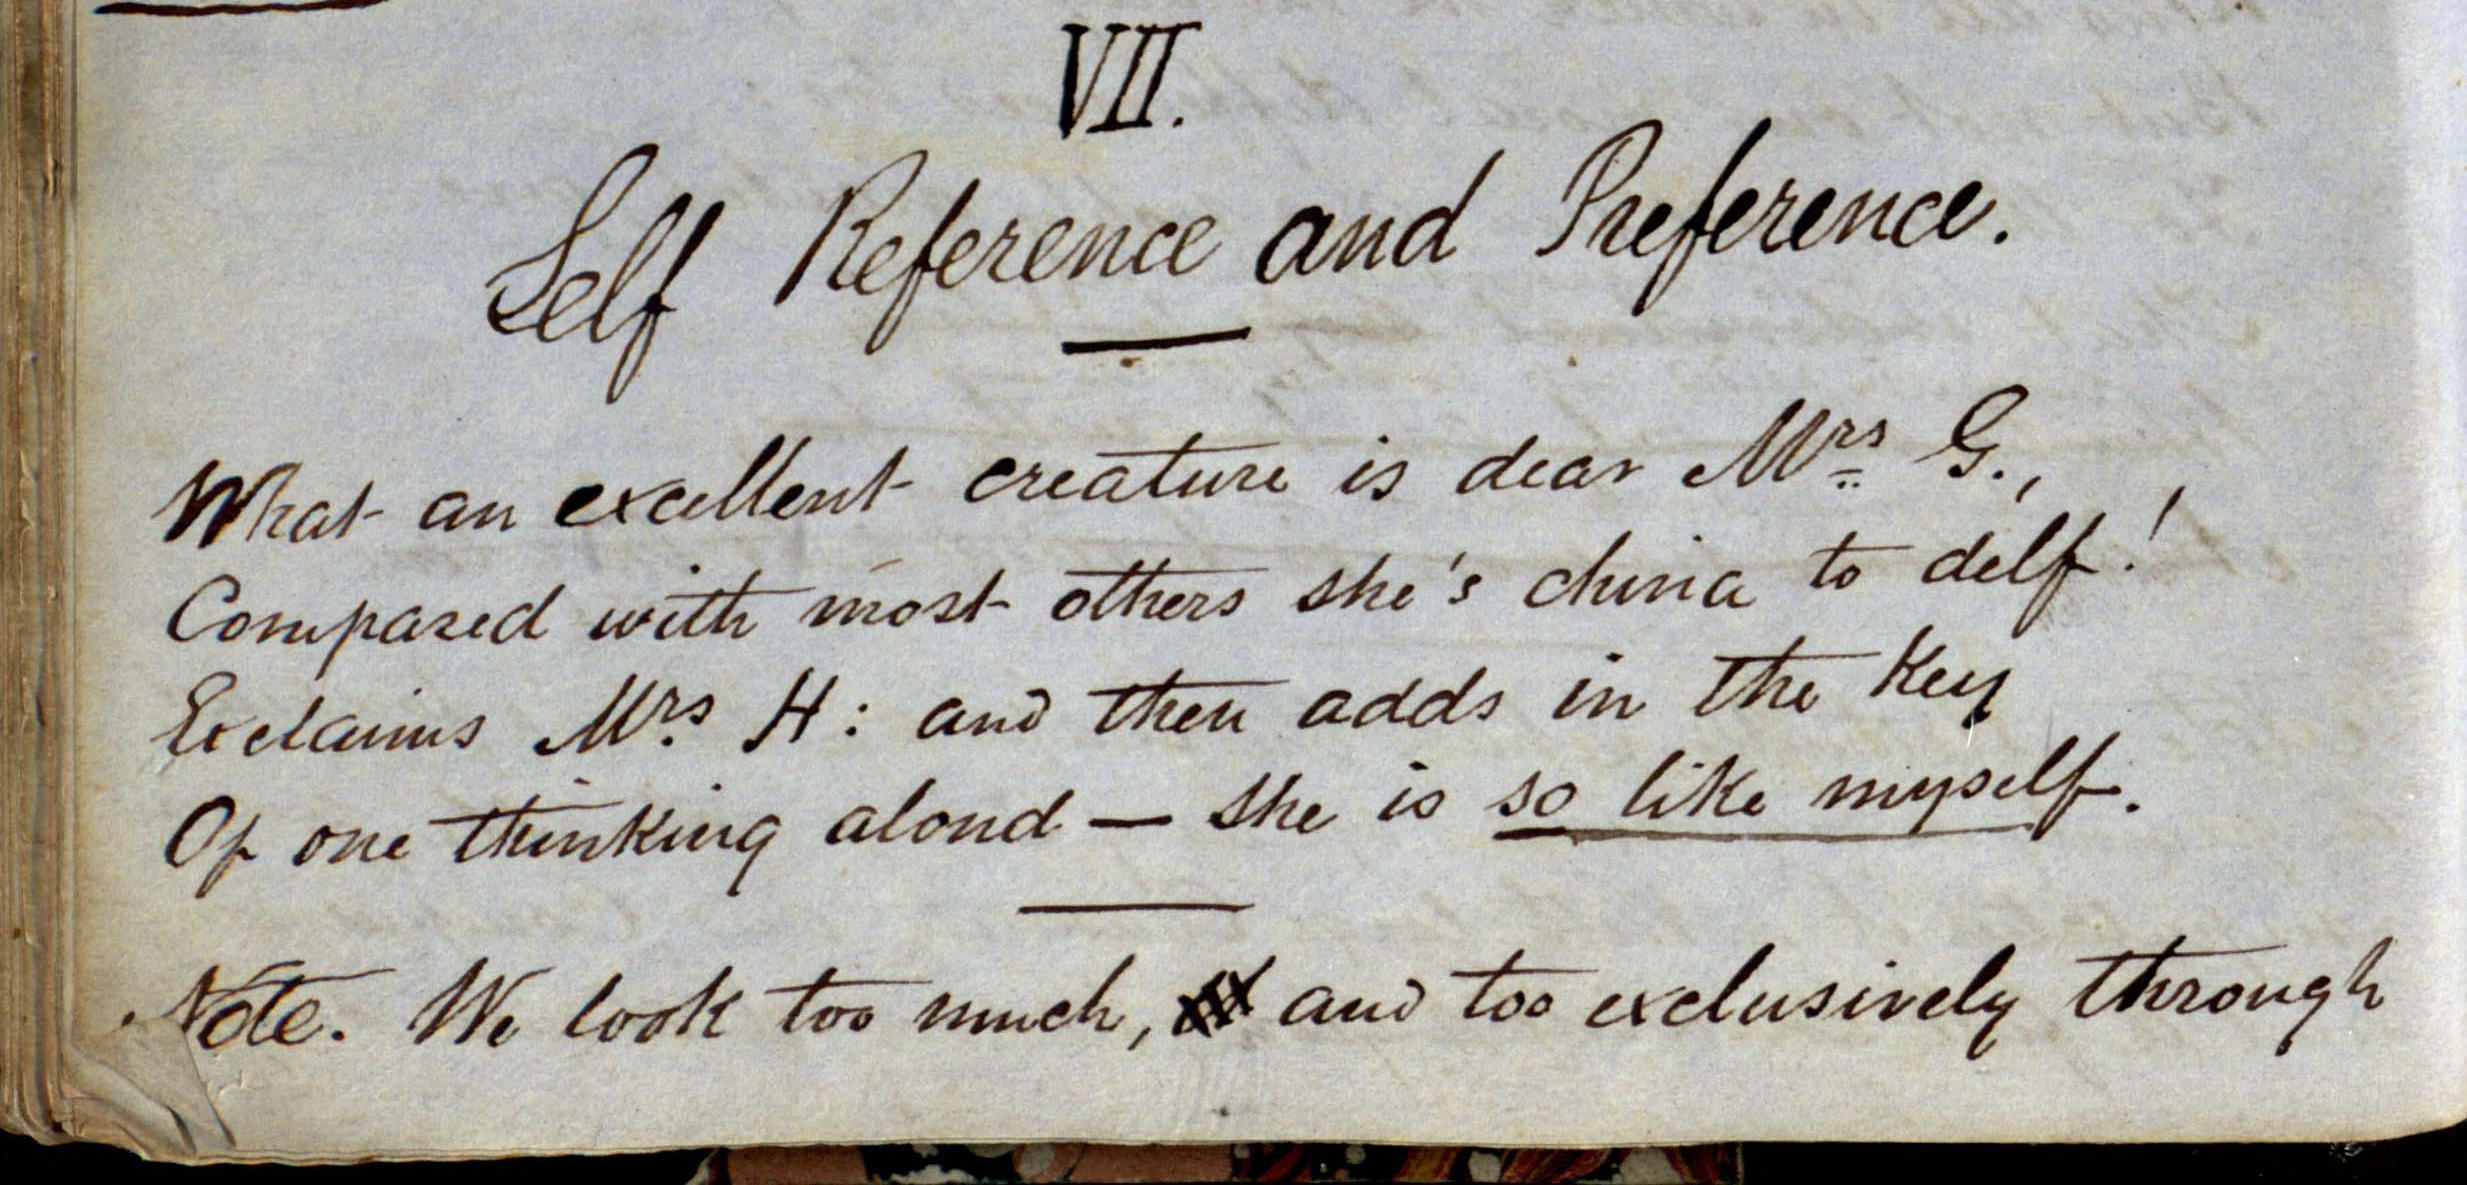 VII.
Self Reference and Preference.
What an excellent creature is dear Mrs G.,
Compared with most others she's china to delf!
Exclaims Mrs. H: and then adds in the key
Of one thinking aloud — she is so like myself.
Note. We look too much, and too exclusively through